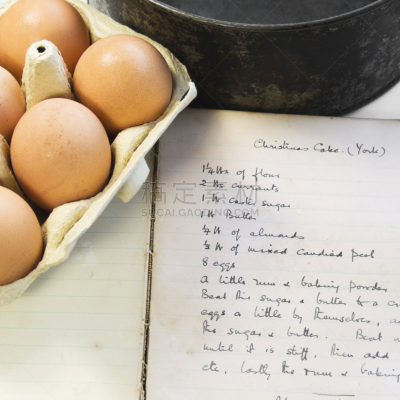 Christmas Cake. (York)
1¼ lbs of flour
2 lbs currants
1 lb Cast. sugar
1 lb Butter
¼ lb of almonds
½ lb of mixed Candied peel
8 eggs
A little rum & baking powder
Beat the sugar & butter to a
eggs a little by themselves,
the sugar & butter. Beat
until it is stiff, then add
etc, lastly the rum & baking
搞定素材
SUCAI.GAODING.COM